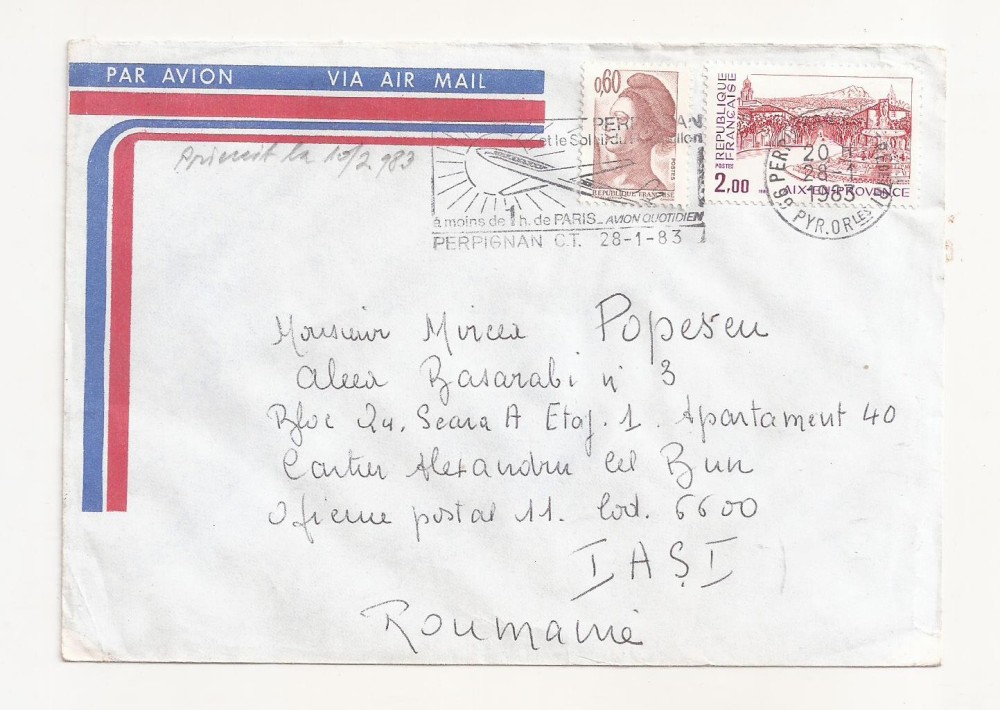 PAR AVION VIA AIR MAIL
0,60
REPUBLIQUE FRANCAISE
POSTES
REPUBLIQUE FRANÇAISE
POSTES 2,00
AIX-EN-PROVENCE
PERPIGNAN
et le Soleil du Roussillon
à moins de 1 h. de PARIS_ AVION QUOTIDIEN
PERPIGNAN C.T. 28-1-83
66 PERP
20
28-1
1983
PYR. OR LES
la 10/2 983
Monsieur Mircea Popescu
Aleea Basarabi n° 3
Bloc 24. Scara A Etaj. 1. Apartament 40
Cartier Alexandru cel Bun
Oficiul postal 11. Cod. 6600
IAȘI
Roumanie